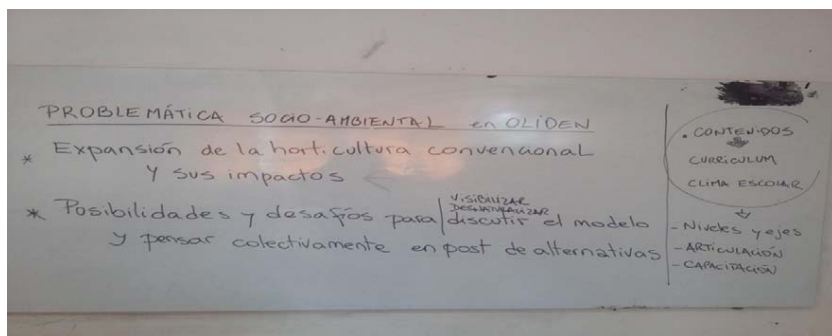 PROBLEMÁTICA SOCIO-AMBIENTAL en OLIDEN
* Expansión de la horticultura convencional
y sus impactos
VISIBILIZAR
DESNATURALIZAR
* Posibilidades y desafíos para discutir el modelo
y pensar colectivamente en post de alternativas
. CONTENIDOS
CURRICULUM
CLIMA ESCOLAR
- Niveles y ejes
- ARTICULACIÓN
- CAPACITACIÓN